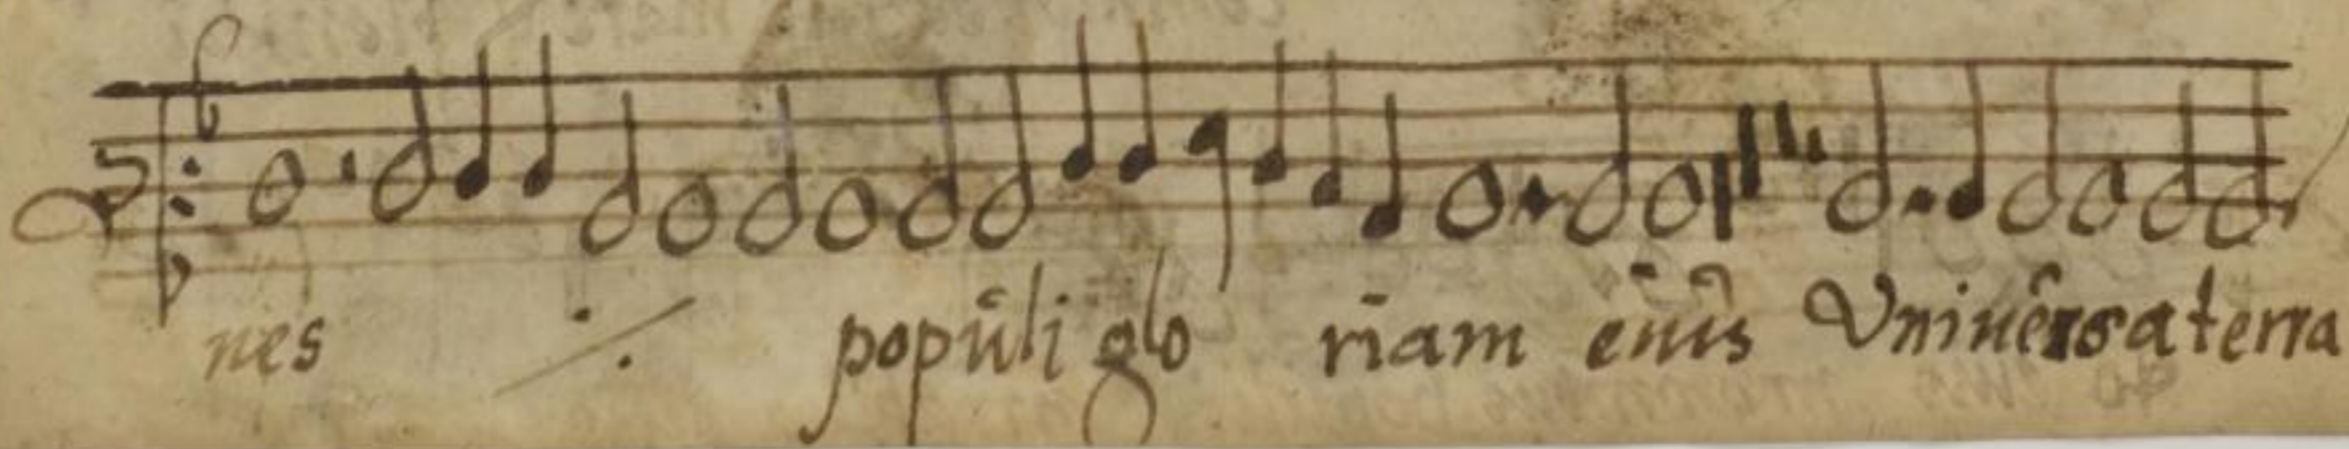 nes ⁒ populi glo riam eius Vniuersa terra